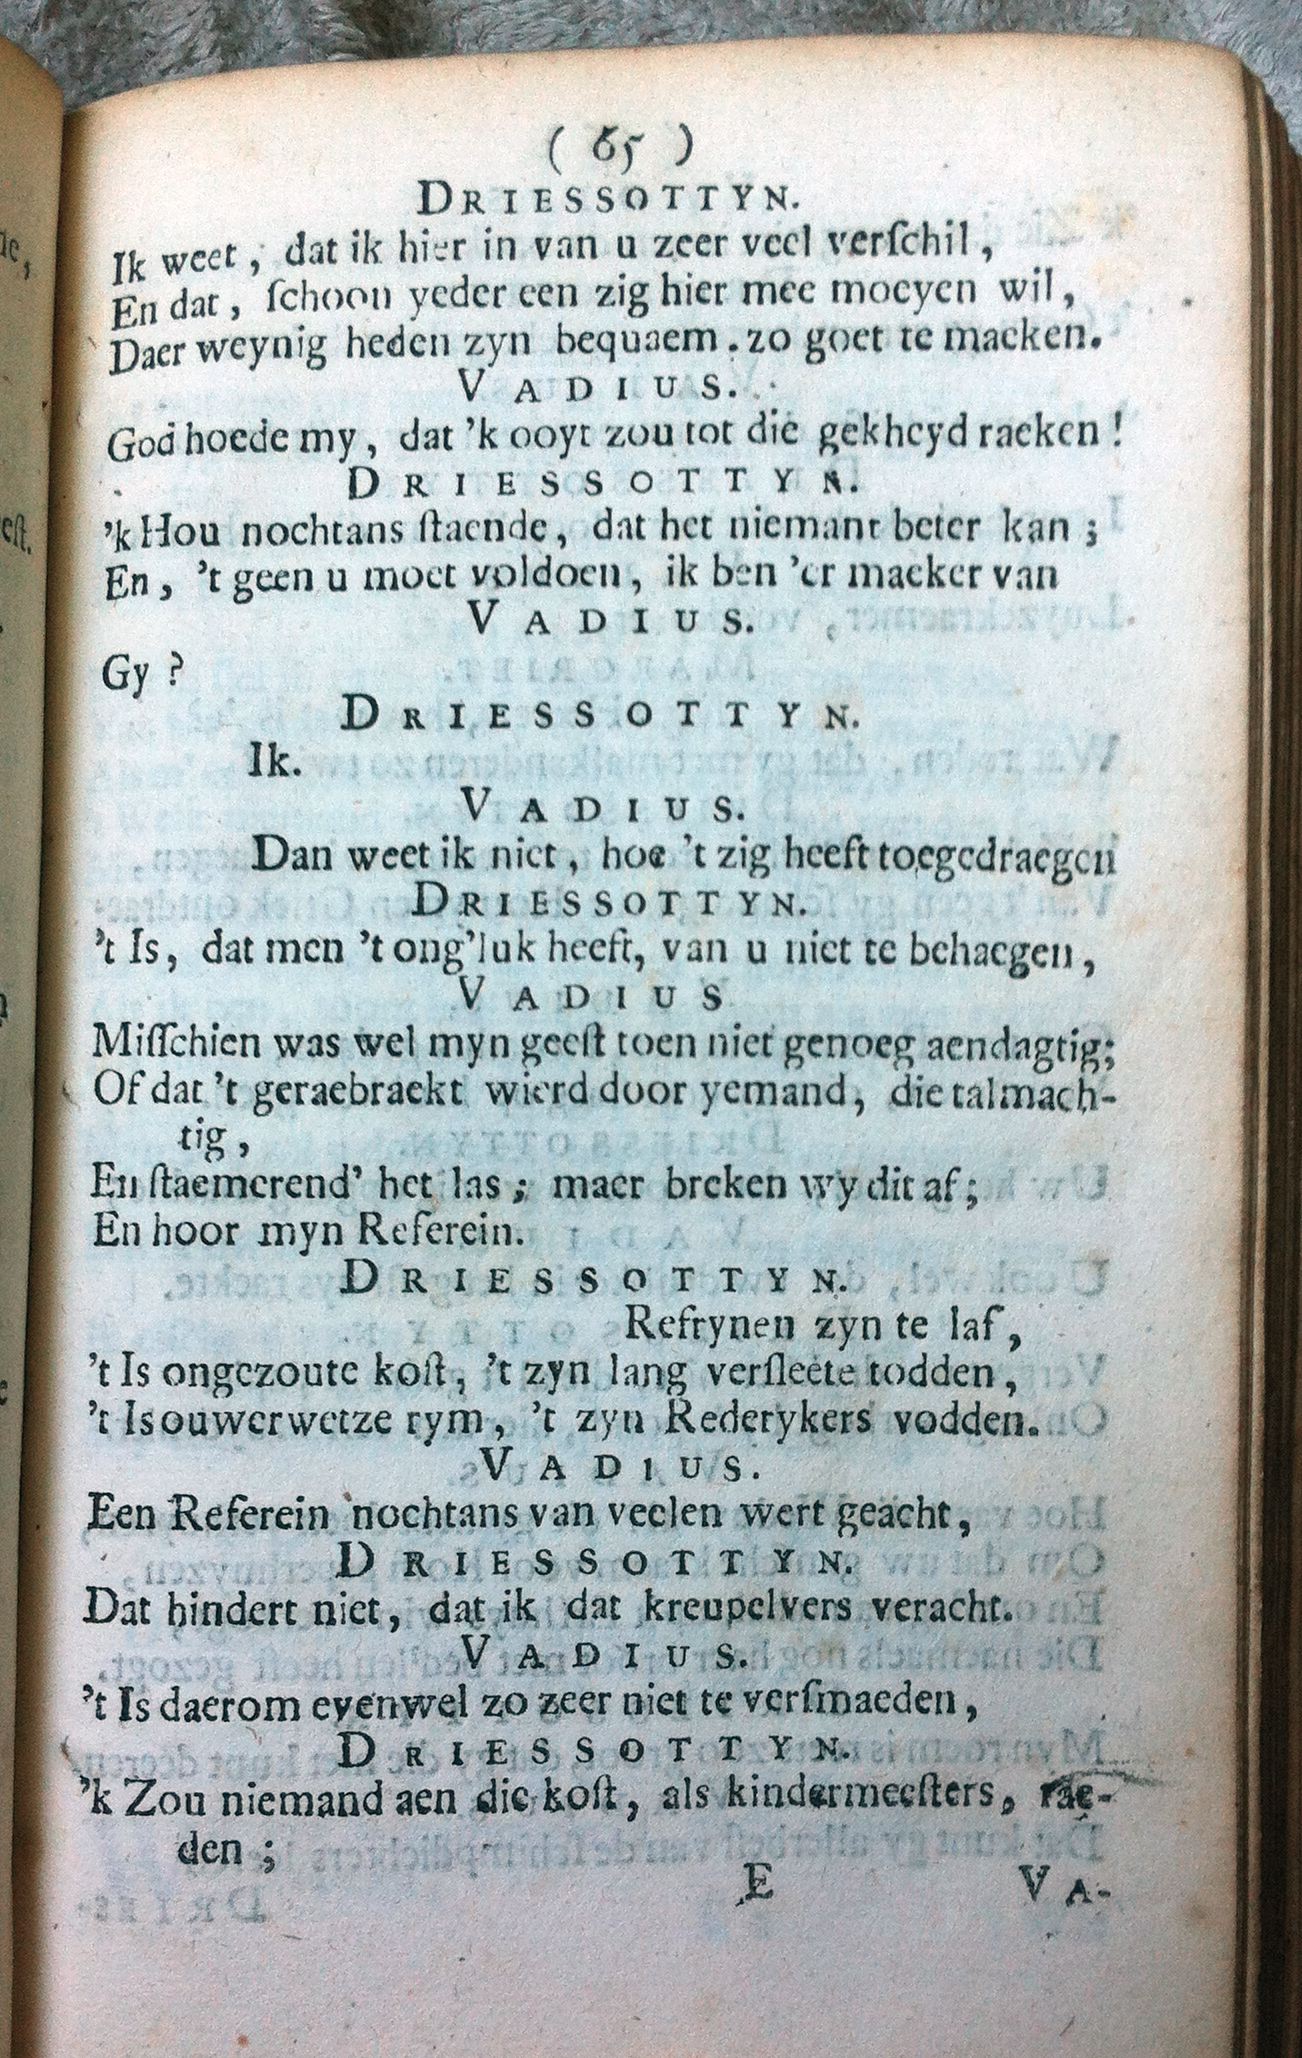 ( 65 )
DRIESSOTTYN.
Ik weet, dat ik hier in van u zeer veel verſchil,
En dat, ſchoon yeder een zig hier mee moeyen wil,
Daer weynig heden zyn bequaem. zo goet te macken.
VADIUS.
God hoede my, dat 'k ooyt zou tot die gekheyd raeken!
DRIESSOTTYN.
'k Hou nochtans ſtaende, dat het niemant beter kan;
En, 't geen u moet voldoen, ik ben 'er maeker van
VADIUS.
Gy?
DRIESSOTTYN.
Ik.
VADIUS.
Dan weet ik niet, hoe 't zig heeft toegedraegen
DRIESSOTTYN.
't Is, dat men 't ong'luk heeft, van u niet te behaegen,
VADIUS
Miſſchien was wel myn geeſt toen niet genoeg aendagtig;
Of dat 't geraebraekt wierd door yemand, die talmach-
tig,
En ſtaemerend' het las; maer breken wy dit af;
En hoor myn Referein.
DRIESSOTTYN.
Refrynen zyn te laf,
't Is ongezoute koſt, 't zyn lang verſleete todden,
't Is ouwerwetze rym, 't zyn Rederykers vodden.
VADIUS.
Een Referein nochtans van veelen wert geacht,
DRIESSOTTYN.
Dat hindert niet, dat ik dat kreupelvers veracht.
VADIUS.
't Is daerom evenwel zo zeer niet te verſmaeden,
DRIESSOTTYN.
'k Zou niemand aen die koſt, als kindermeeſters, rae-
den;
E VA-